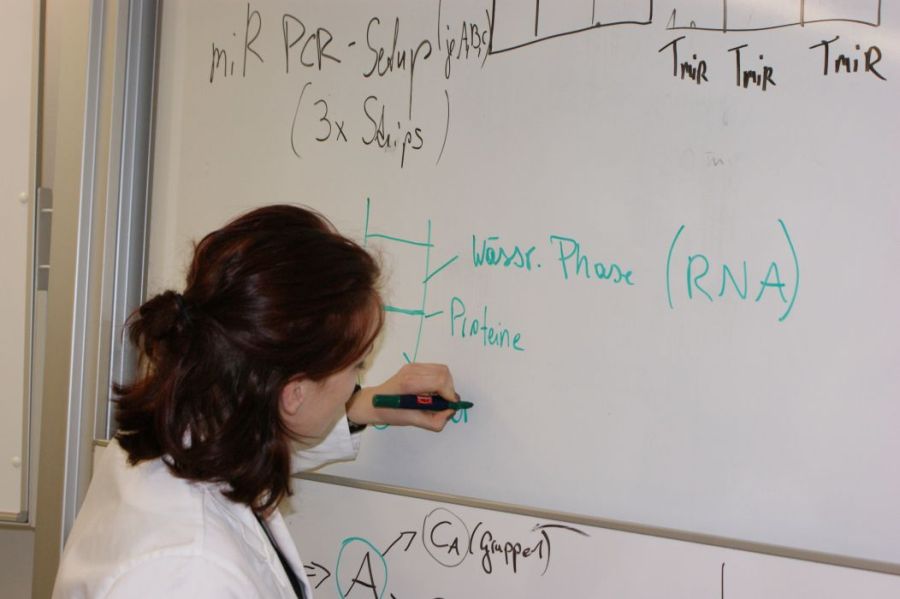 miR PCR-Setup (je A,B,C)
(3x Strips)
TmiR TmiR TmiR
Wässr. Phase (RNA)
Proteine
A
CA (Gruppe 1)